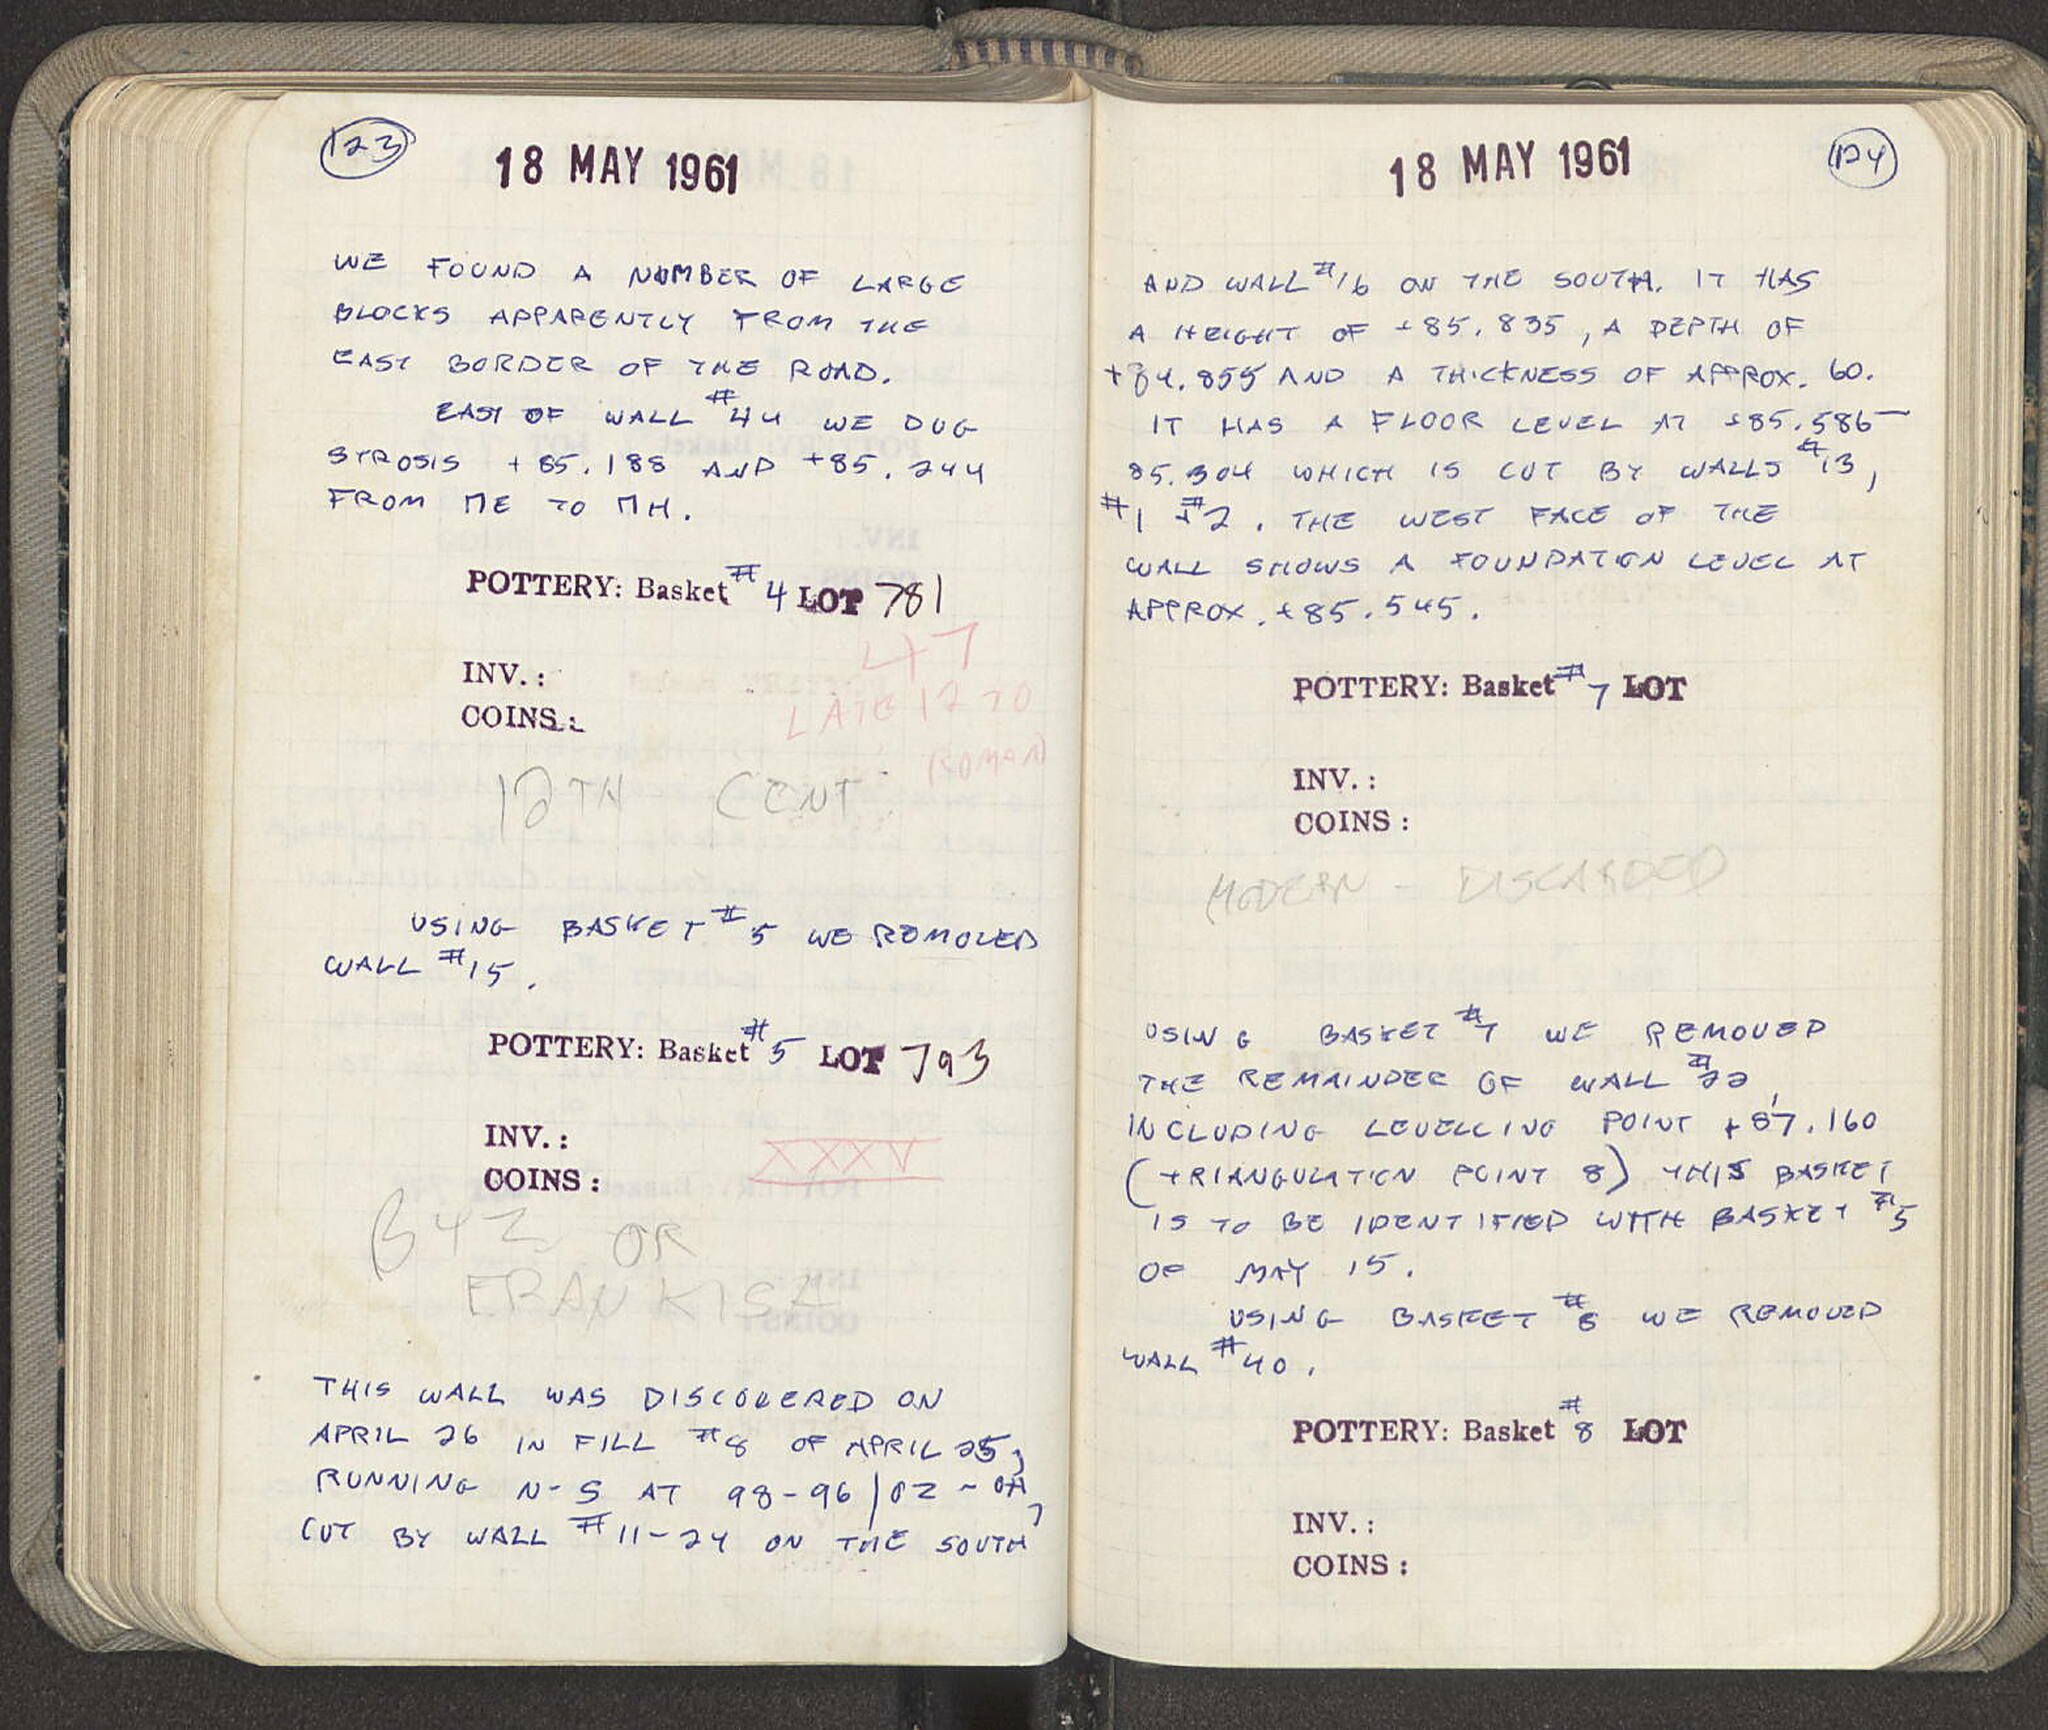 123
18 MAY 1961
WE FOUND A NUMBER OF LARGE
BLOCKS APPARENTLY FROM THE
EAST BORDER OF THE ROAD.
EAST OF WALL #44 WE DUG
STROSIS +85.188 AND +85.244
FROM ΠΕ TO ΠΗ.
POTTERY: Basket #4 LOT 781
INV.:
COINS:
47
LATE 12 TO
ROMAN
12TH CENT
USING BASKET #5 WE REMOVED
WALL #15.
POTTERY: Basket #5 LOT 793
INV.:
COINS:
XXXV
BYZ OR
FRANKISH
THIS WALL WAS DISCOVERED ON
APRIL 26 IN FILL #8 OF APRIL 25,
RUNNING N-S AT 98-96/OZ - OH,
CUT BY WALL #11-24 ON THE SOUTH
18 MAY 1961
124
AND WALL #16 ON THE SOUTH. IT HAS
A HEIGHT OF +85.835, A DEPTH OF
+84.855 AND A THICKNESS OF APPROX. 60.
IT HAS A FLOOR LEVEL AT +85.586-
85.304 WHICH IS CUT BY WALLS #13,
#1 + #2. THE WEST FACE OF THE
WALL SHOWS A FOUNDATION LEVEL AT
APPROX. +85.545.
POTTERY: Basket #7 LOT
INV.:
COINS:
MODERN - DISCARDED
USING BASKET #7 WE REMOVED
THE REMAINDER OF WALL #22
INCLUDING LEVELLING POINT +87.160
(TRIANGULATION POINT 8) THIS BASKET
IS TO BE IDENTIFIED WITH BASKET #5
OF MAY 15.
USING BASKET #8 WE REMOVED
WALL #40.
POTTERY: Basket #8 LOT
INV.:
COINS: